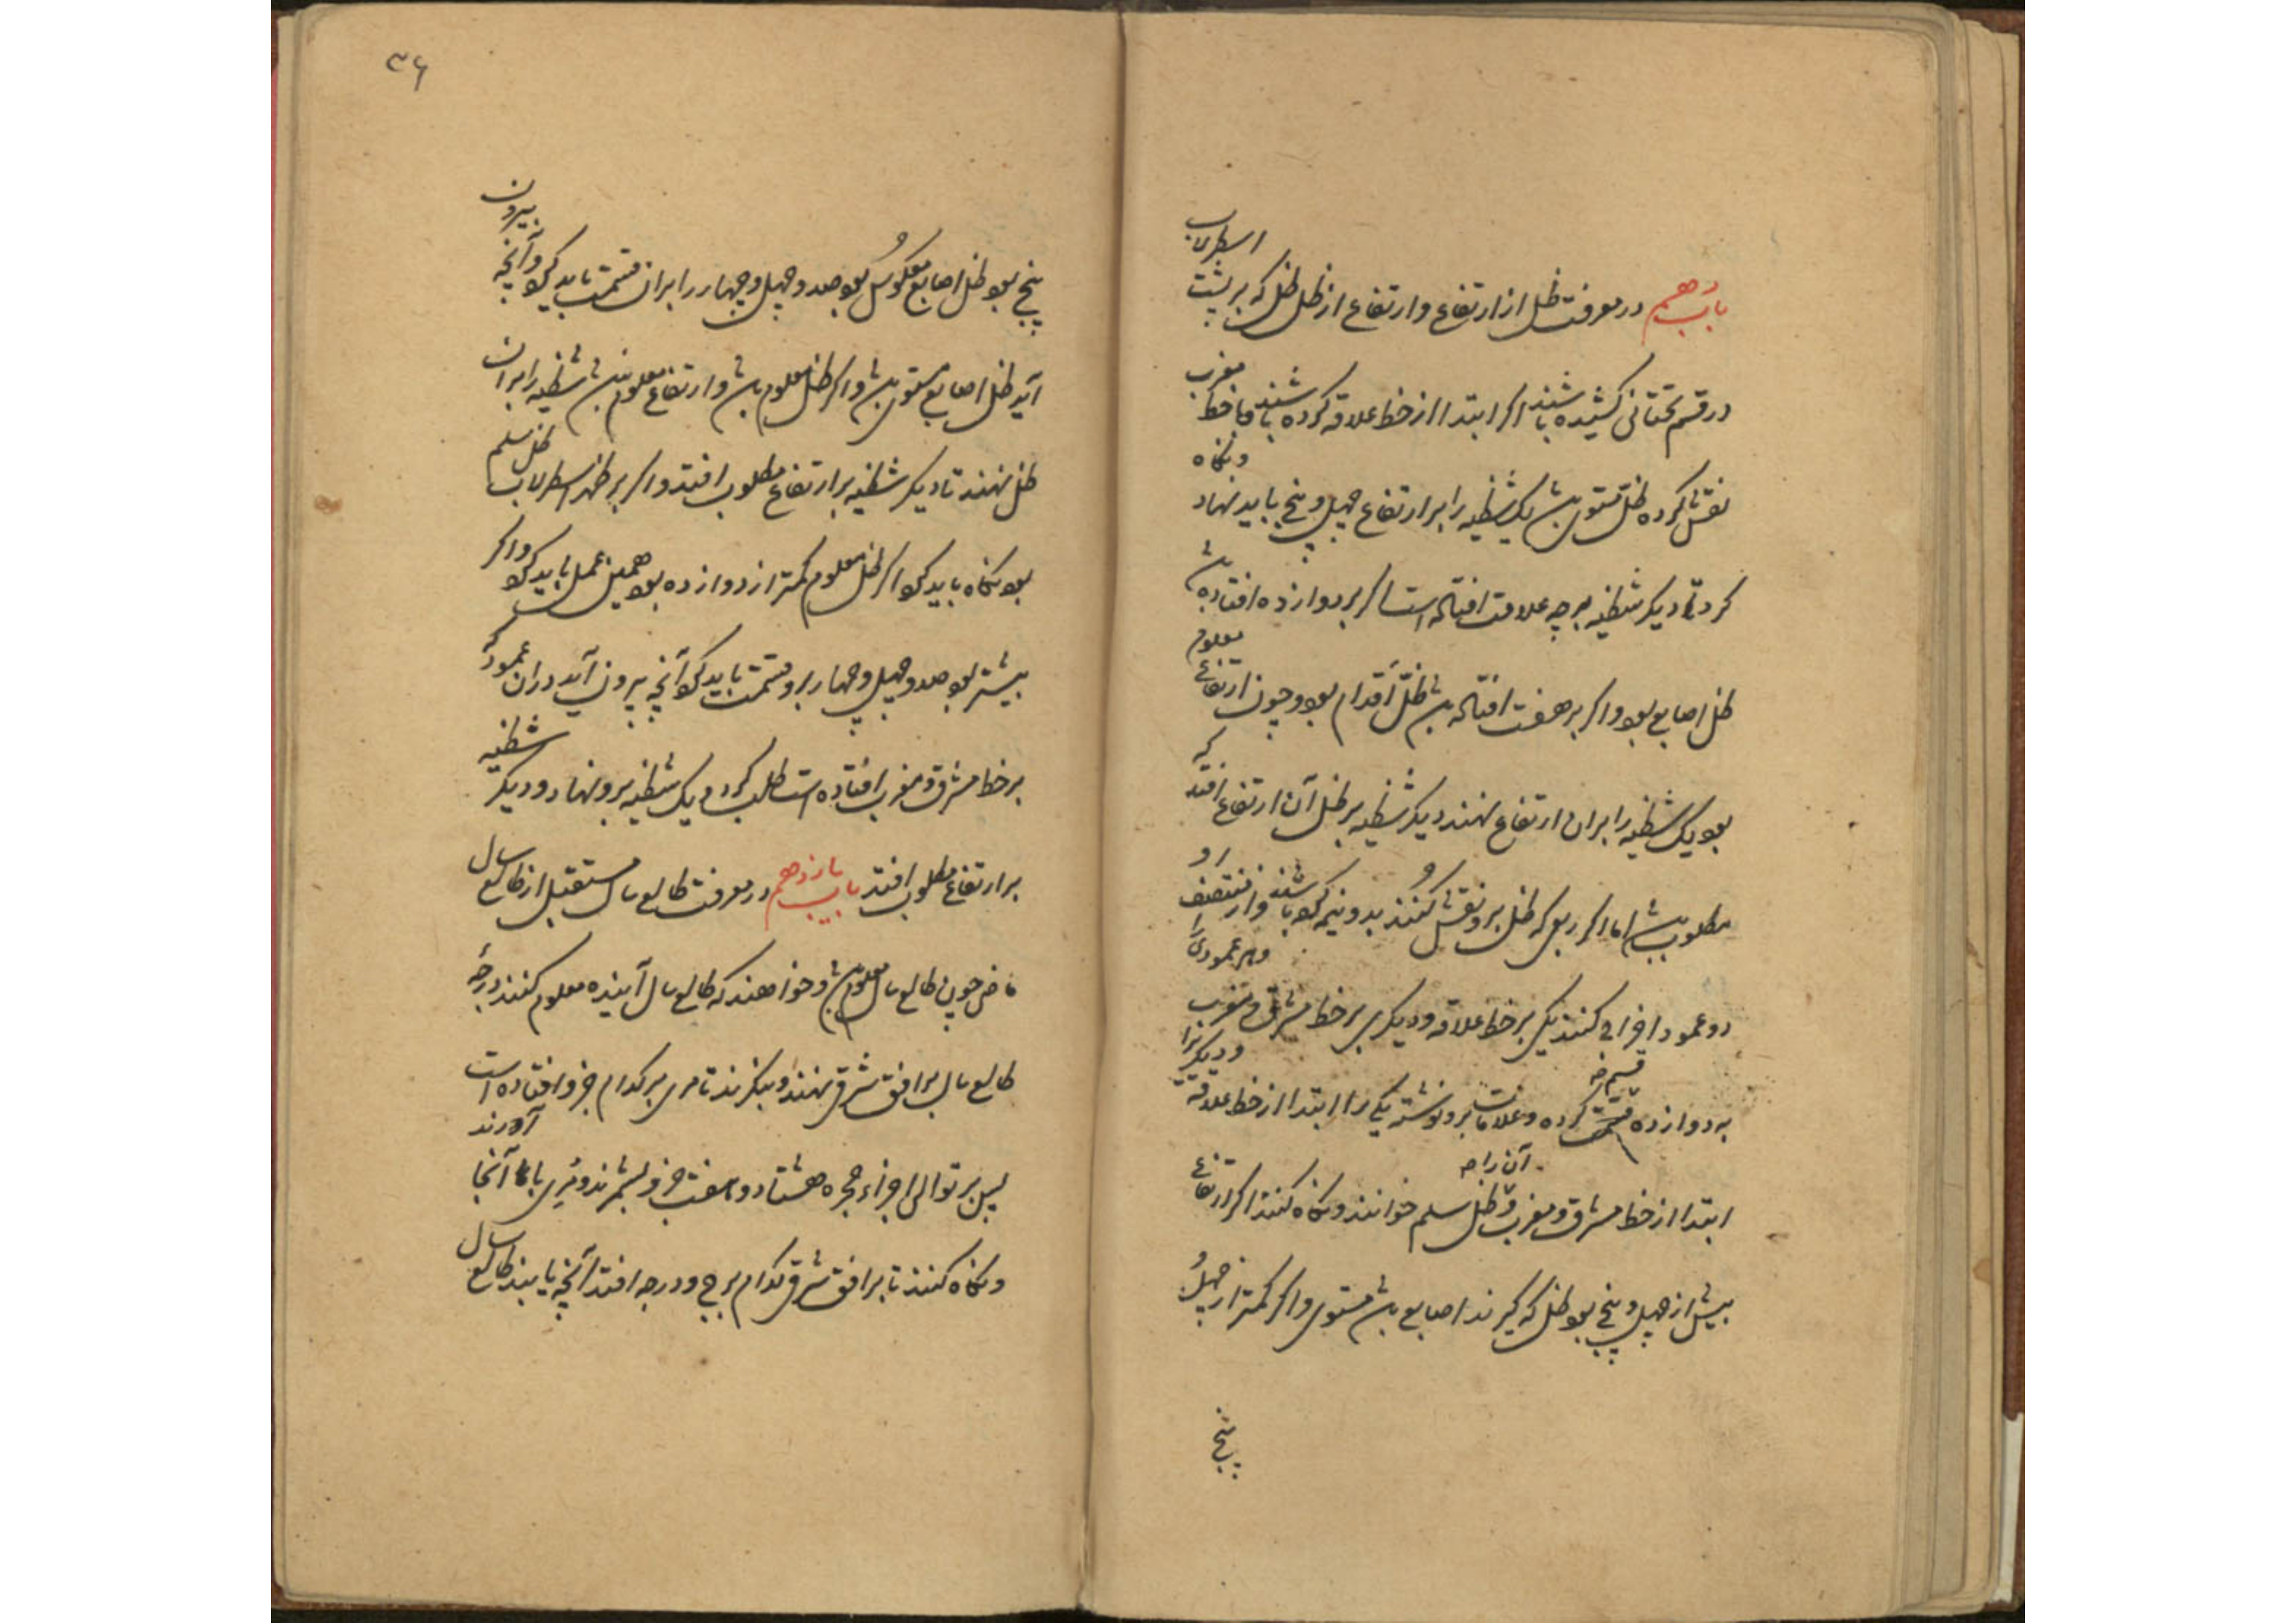 باب دهم در معرفت ظل از ارتفاع و ارتفاع از ظل ظل که بر پشت اسطرلاب
در قسم تحتانی کشیده باشند اگر ابتدا از خط علاقه کرده باشند و با خط مغرب
نقش کرده ظل مستوی باشد یک شظیه را بر ارتفاع چهل و پنج باید نهاد و نگاه
کرد تا دیگر شظیه بر چه علامت افتاده است اگر بر دوازده افتاده باشد
ظل اصابع بود و اگر بر هفت افتاده باشد ظل اقدام بود و چون ارتفاع معلوم
بود یک شظیه را بر ان ارتفاع نهند دیگر شظیه بر ظل آن ارتفاع افتد که
مطلوب باشد اما اگر ربعی که ظل برو نقش کنند بدو نیم کرده باشند و از منتصف او
دو عمود اخراج کنند یکی بر خط علاقه و دیگری بر خط مشرق و مغرب و هر عمودی را
به دوازده قسمت کرده و علامات برو نوشته یکی را ابتدا از خط علاقه و دیگر را
قسم خ
ابتدا از خط مشرق و مغرب و آن را ظل سلم خوانند و نگاه کنند اگر ارتفاع
بیش از چهل و پنج بود ظل که گیرند اصابع باشد مستوی و اگر کمتر از چهل و
پنج
۳۶
پنج بود ظل اصابع معکوس بود صد و چهل و چهار را بران قسمت باید کرد و آنچه بیرون
آید ظل اصابع مستوی باشد و اگر ظل معلوم باشد و ارتفاع معلوم نباشد شظیه را بران
ظل نهند تا دیگر شظیه بر ارتفاع مطلوب افتد و اگر بر ظهر اسطرلاب ظل سلم
بود نگاه باید کرد اگر ظل معلوم کمتر از دوازده بود همین عمل باید کرد و اگر
بیشتر بود صد و چهل و چهار برو قسمت باید کرد آنچه بیرون آید دران عمود که
بر خط مشرق و مغرب افتاده است طلب کرد و یک شظیه برو نهاد و دیگر شظیه
بر ارتفاع مطلوب افتد باب یازدهم در معرفت طالع سال مستقبل از طالع سال
ماضی چون طالع سال معلوم باشد و خواهند که طالع سال آینده معلوم کنند درجهٔ
طالع سال بر افق شرقی نهند و بنگرند تا مری بر کدام جزو افتاده است
پس بر توالی اجزاء حجره هشتاد و هفت جزو بشمرند و مری با آنجا آورند
و نگاه کنند تا بر افق شرقی کدام برج و درجه افتد آنچه یابند طالع سال